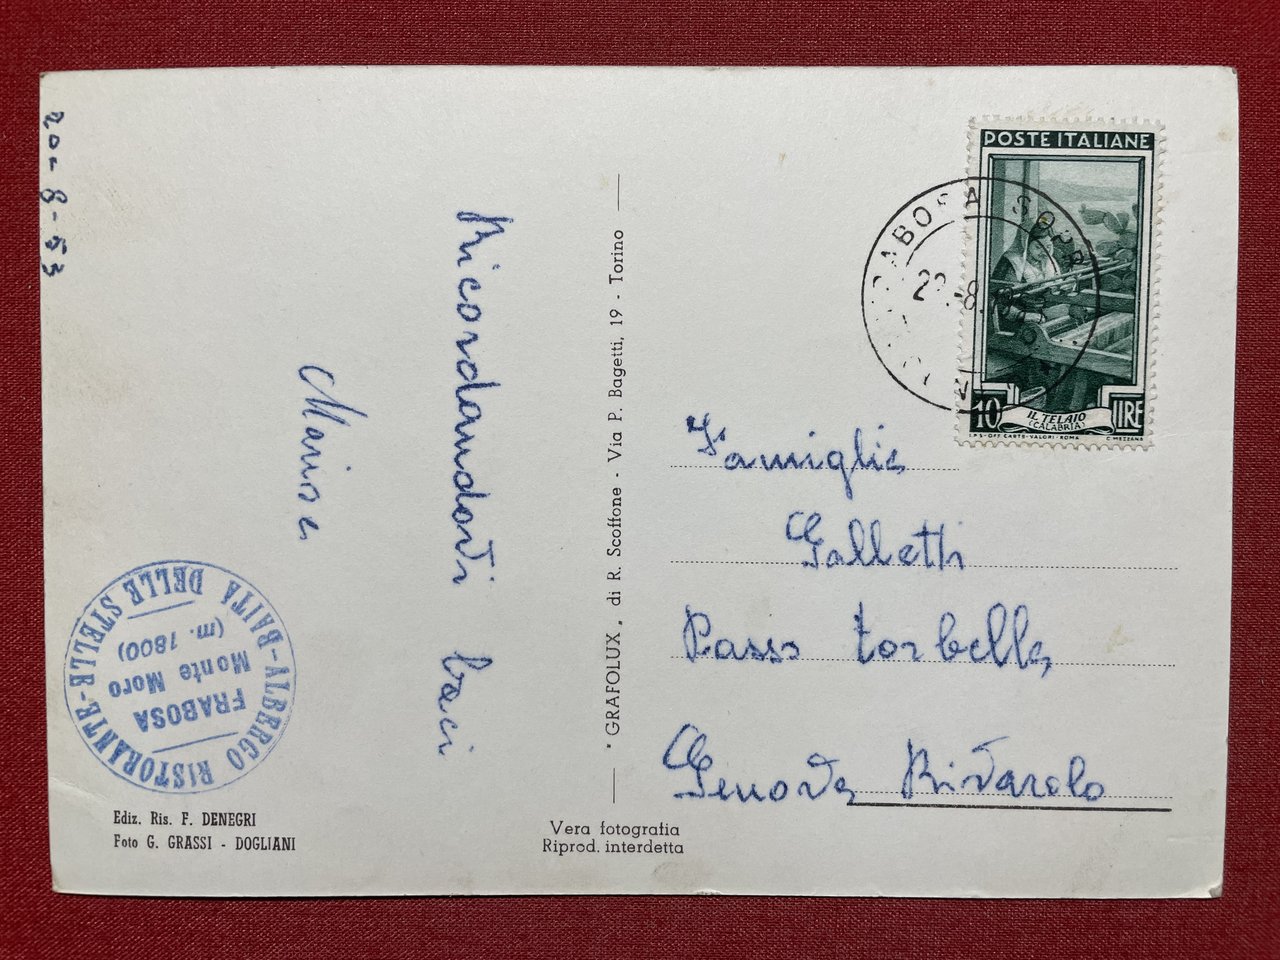 20-8-53
Ricordandovi baci
Marisa
ALBERGO RISTORANTE - BAITA DELLE STELLE -
FRABOSA
Monte Moro
(m. 1800)
Ediz. Ris. F. DENEGRI
Foto G. GRASSI - DOGLIANI
"GRAFOLUX" di R. Scoffone - Via P. Bagetti, 19 - Torino
Vera fotografia
Riprod. interdetta
POSTE ITALIANE
10 LIRE
IL TELAIO
(CALABRIA)
I.P.S-OFF. CARTE-VALORI-ROMA C. MEZZANA
FRABOSA SOPR
Famiglia
Galletti
Passo Torbella
Genova Rivarolo